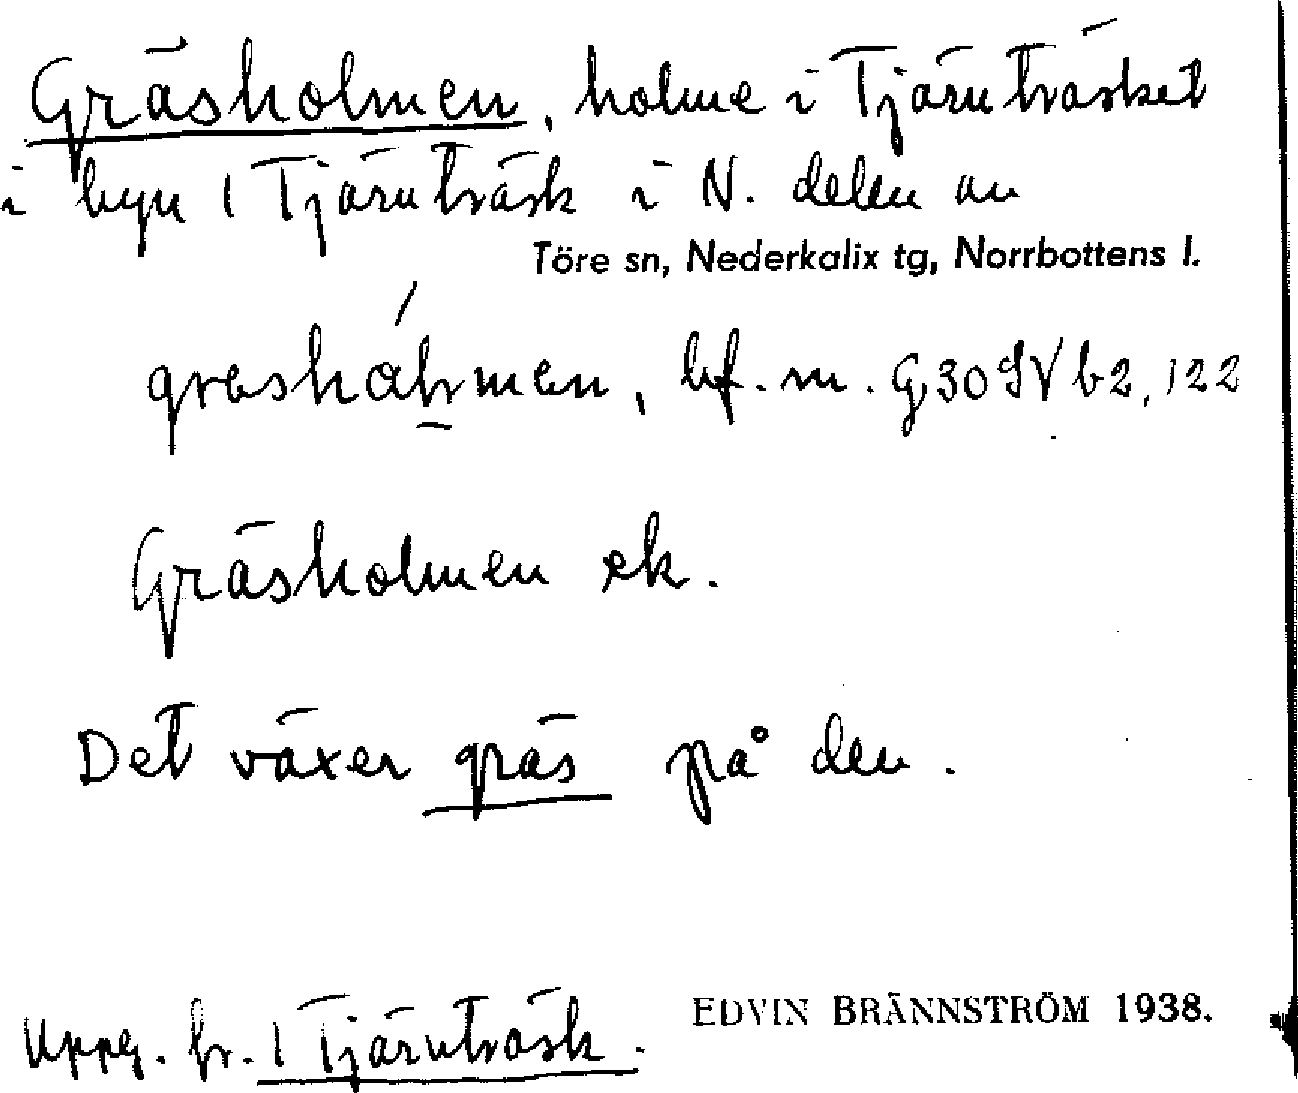 Gräsholmen, holme i Tjärnträsket
i byn 1 Tjärnträsk i N. delen av
Töre sn, Nederkalix tg, Norrbottens l.
bf. m. G30SVb2,122
Gräsholmen ek.
Det växer gräs på den.
Uppg. fr. 1 Tjärnträsk.
EDVIN BRÄNNSTRÖM 1938.